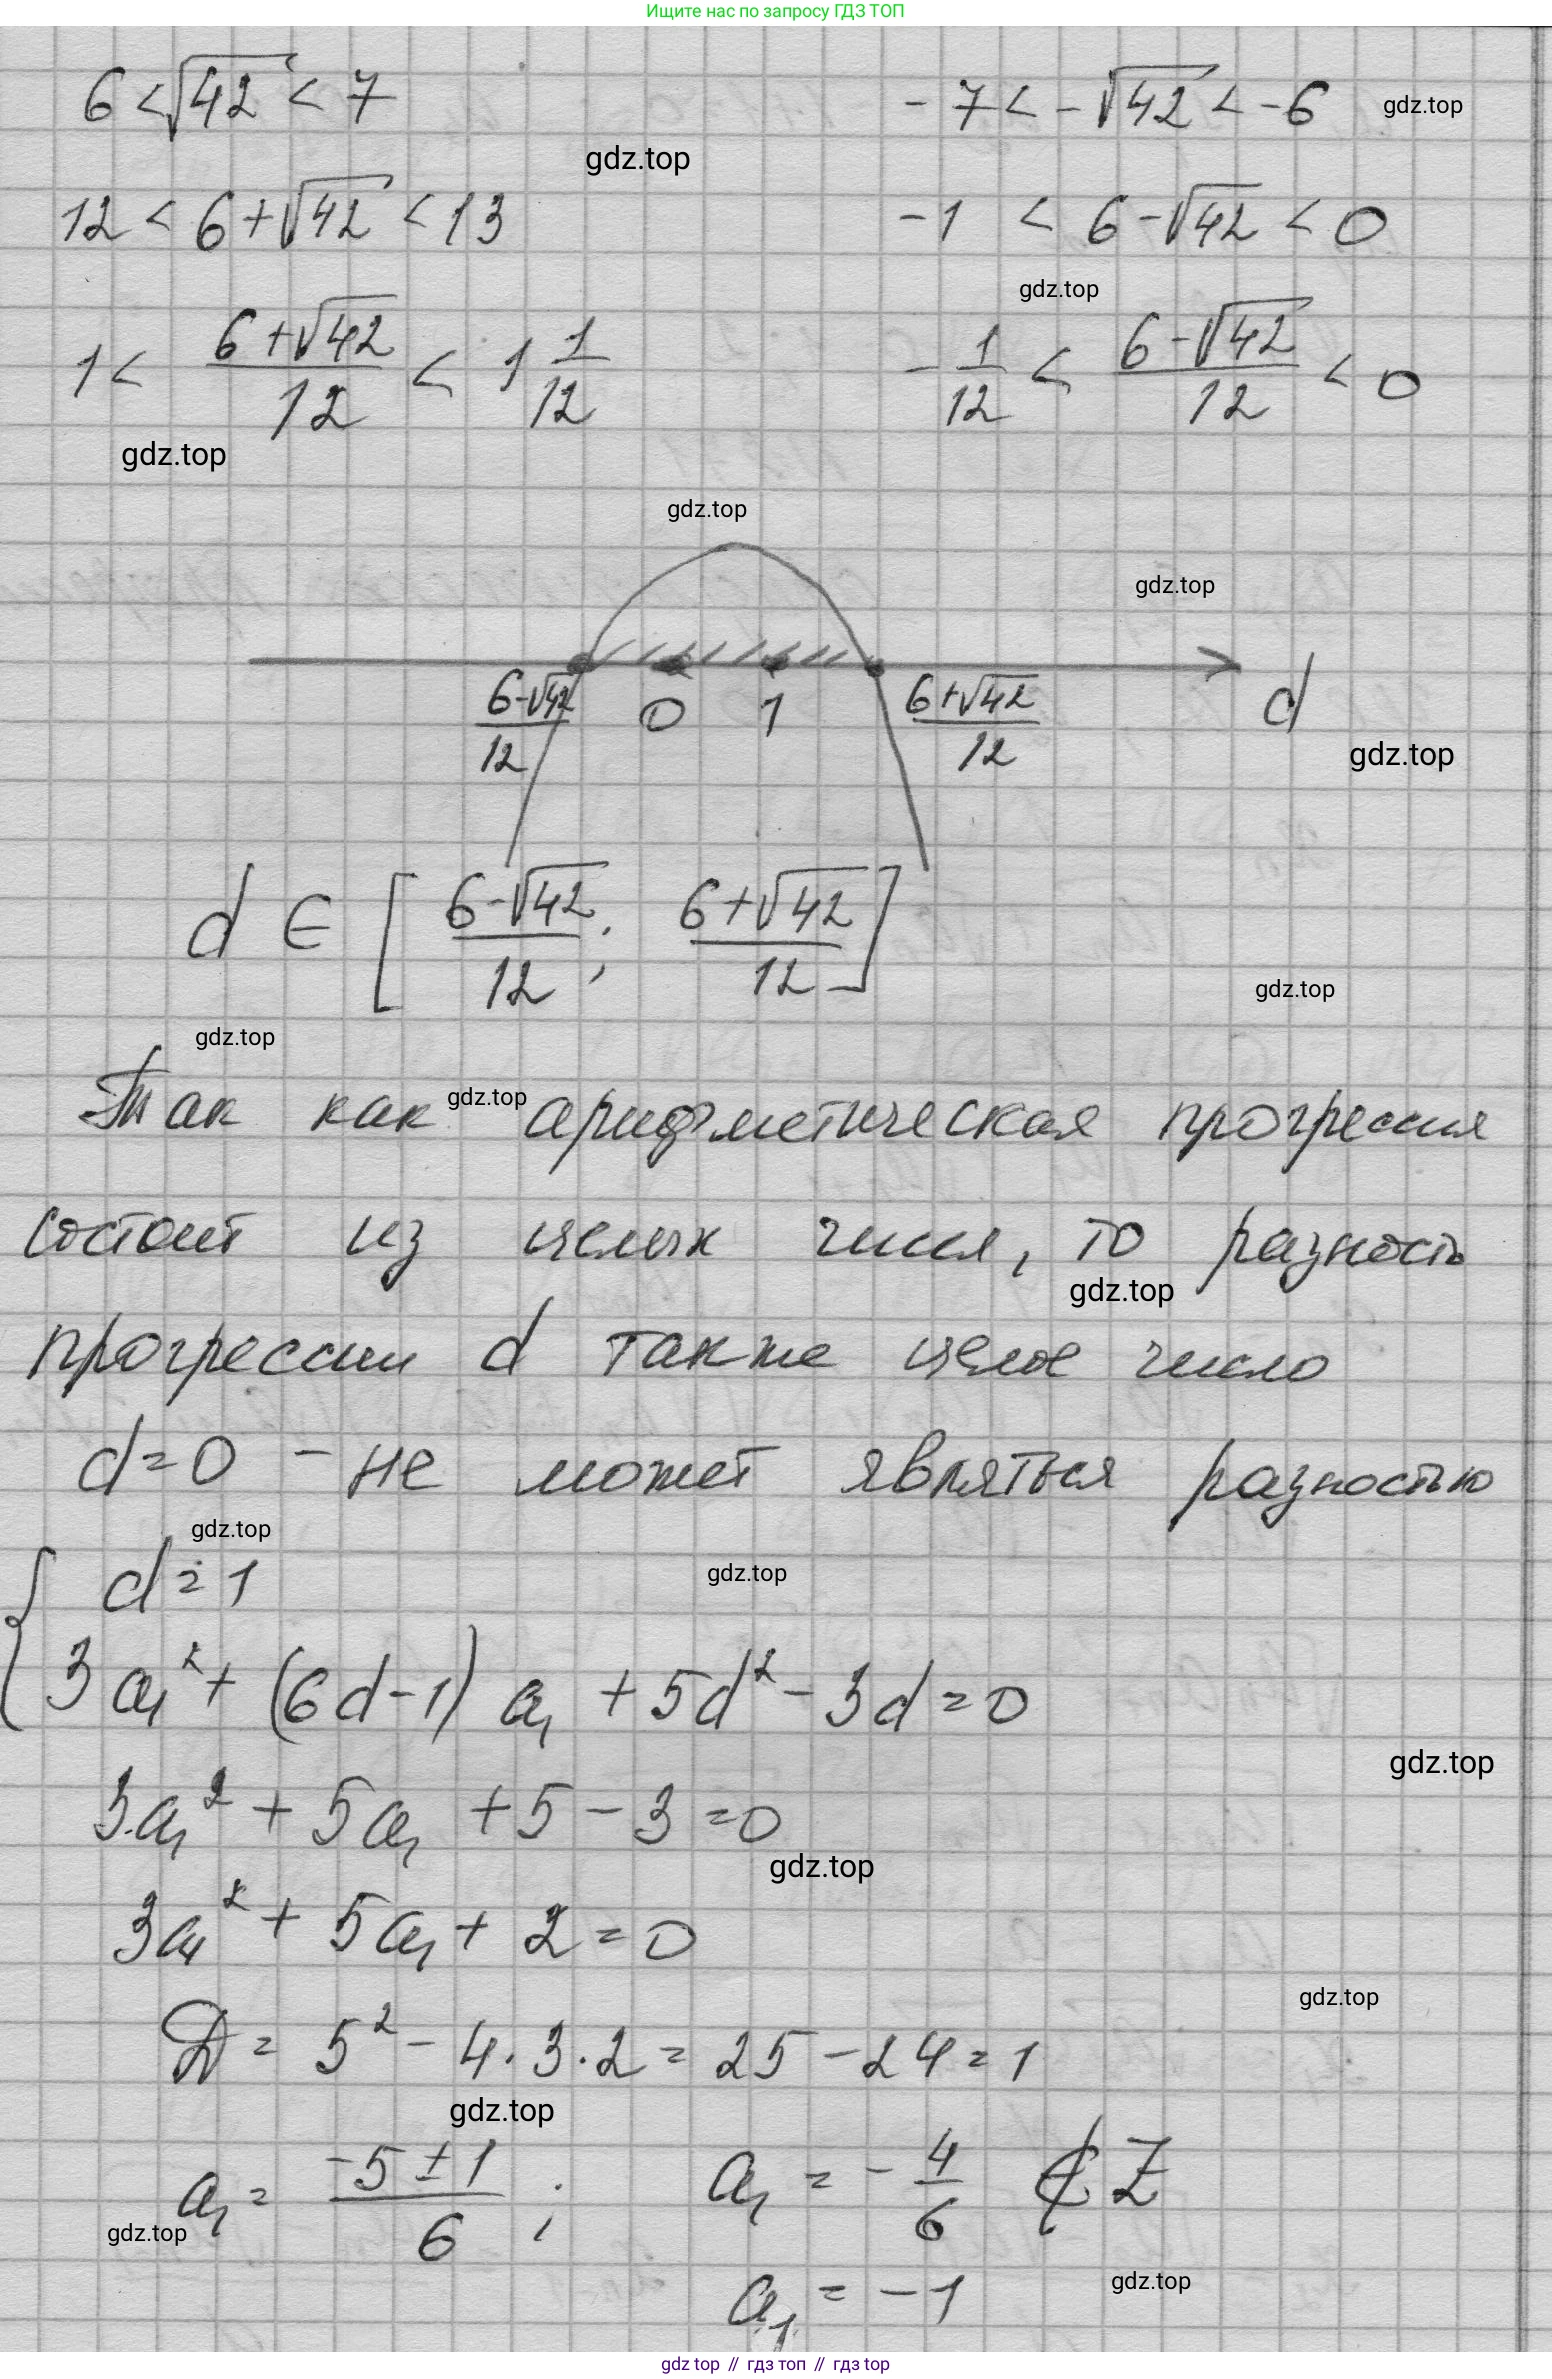 Ищите нас по запросу ГДЗ ТОП
6 < √42 < 7   -7 < -√42 < -6   gdz.top
gdz.top
12 < 6+√42 < 13   -1 < 6-√42 < 0
gdz.top
1 < (6+√42)/12 < 1 1/12   -1/12 < (6-√42)/12 < 0
gdz.top
gdz.top
gdz.top
(6-√42)/12   0   1   (6+√42)/12   d
gdz.top
d ∈ [(6-√42)/12; (6+√42)/12]
gdz.top
gdz.top
Так как gdz.top арифметическая прогрессия
состоит из целых чисел, то разность
gdz.top
прогрессии d также целое число
d=0 - не может являться разностью
gdz.top
{ d=1
gdz.top
3a₁² + (6d-1)a₁ + 5d² - 3d = 0
gdz.top
3a₁² + 5a₁ + 5 - 3 = 0
gdz.top
3a₁² + 5a₁ + 2 = 0
gdz.top
D = 5² - 4·3·2 = 25 - 24 = 1
gdz.top
a₁ = (-5 ± 1)/6 ;   a₁ = -4/6 ∉ Z
gdz.top
gdz.top
a₁ = -1
gdz top // гдз топ // гдз top